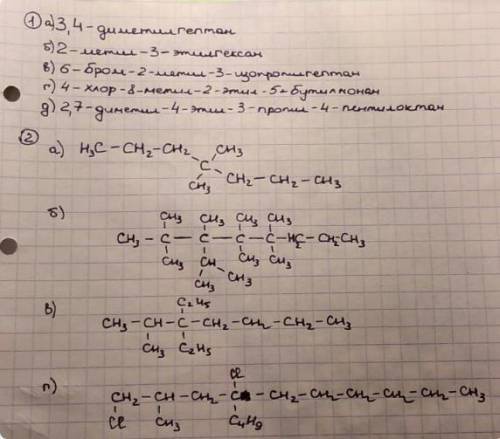 ① а) 3,4-диметилгептан
б) 2-метил-3-этилгексан
в) 6-бром-2-метил-3-изопропилгептан
г) 4-хлор-8-метил-2-этил-5-бутилнонан
д) 2,7-диметил-4-этил-3-пропил-4-пентилоктан
②
а) H₃C-CH₂-CH₂ CH₃
C
CH₃ CH₂-CH₂-CH₃
б)
CH₃ CH₃ CH₃ CH₃
CH₃-C-C-C-C-H₂C-CH₂-CH₃
CH₃ CH CH₃ CH₃
CH₃ CH₃
в) C₂H₅
CH₃-CH-C-CH₂-CH₂-CH₂-CH₃
CH₃ C₂H₅
г) Cl
CH₂-CH-CH₂-C-CH₂-CH₂-CH₂-CH₂-CH₂-CH₃
Cl CH₃ C₄H₉